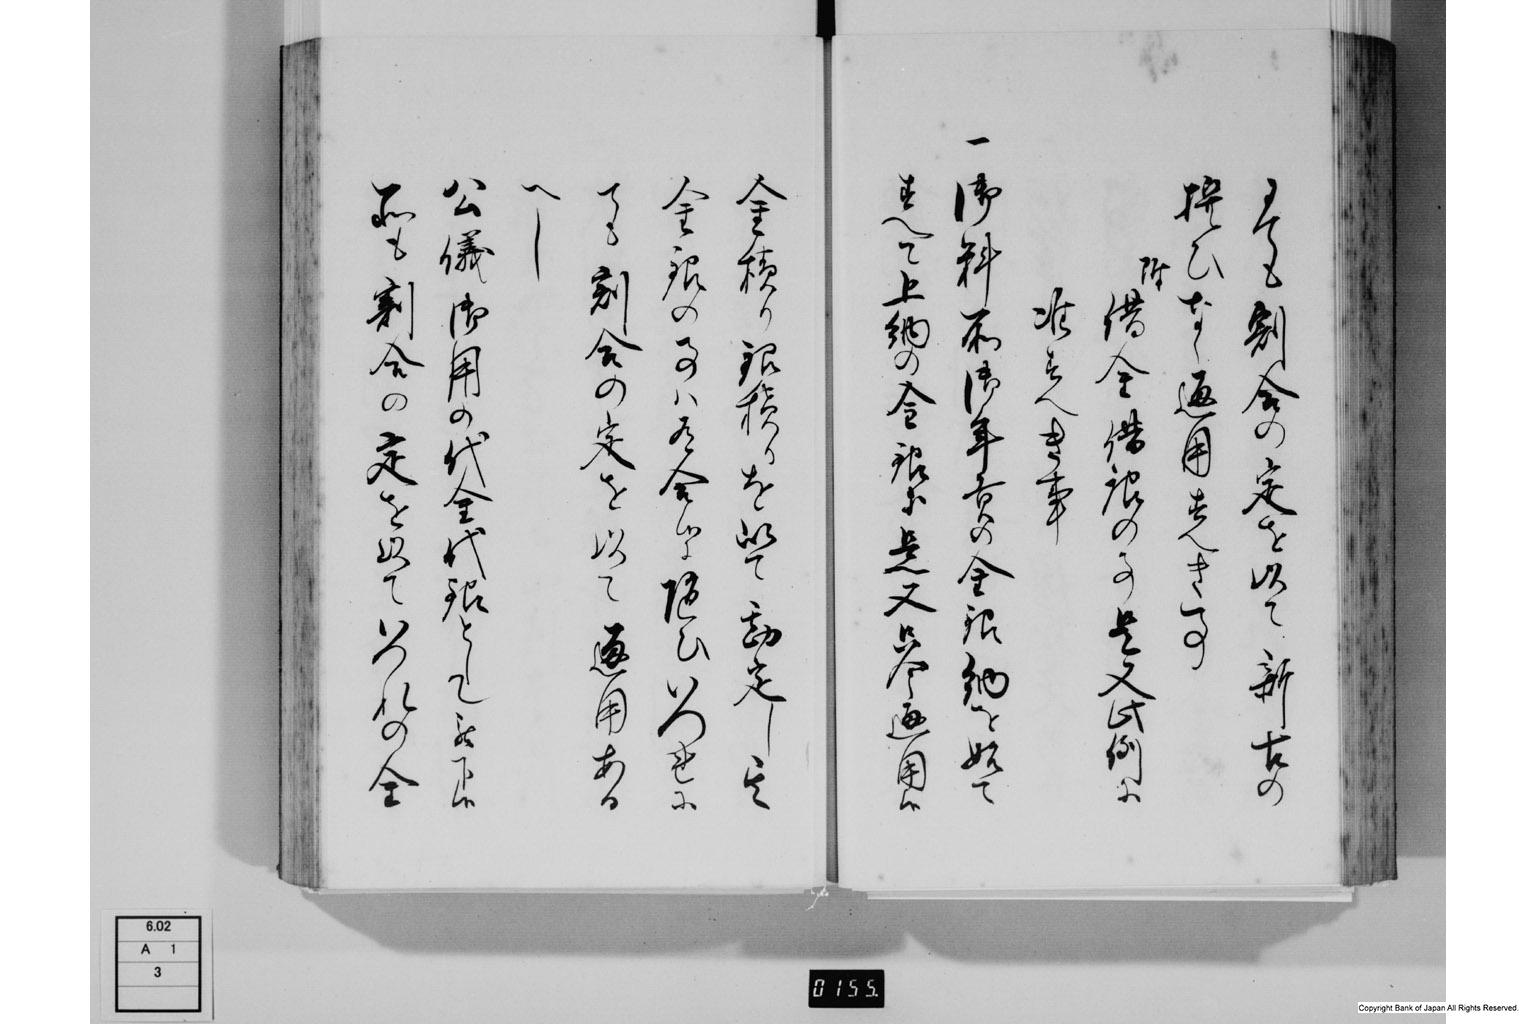 ても割合の定を以て新古の
撰ひなく通用すへき事
附
借金借銀の事是又此例に
准すへき事
一御料所御年貢の金銀納を始て
すへて上納の金銀に是又只今通用の
金積り銀積りを以て勘定し其
金銀の事ハ有合に随ひいつれに
ても割合の定を以て通用ある
へし
公儀御用の代金代銀として被下候
にも割合の定を以ていつれの金
6.02
A 1
3
0155.
Copyright Bank of Japan All Rights Reserved.